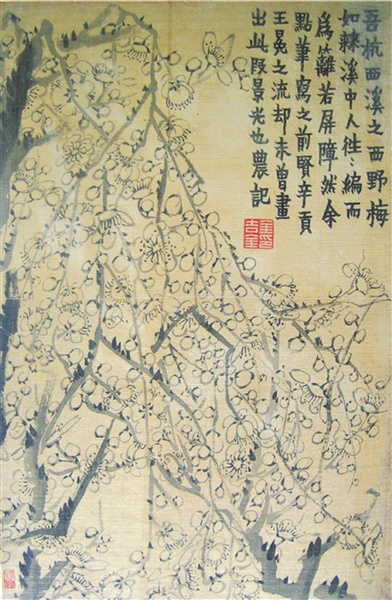 吾杭西溪之西野梅
如棘溪中人往々編而
為籬若屏障然余
點筆寫之前賢辛貢
王冕之流却未曾畫
出此段景光也農記
金吉金印